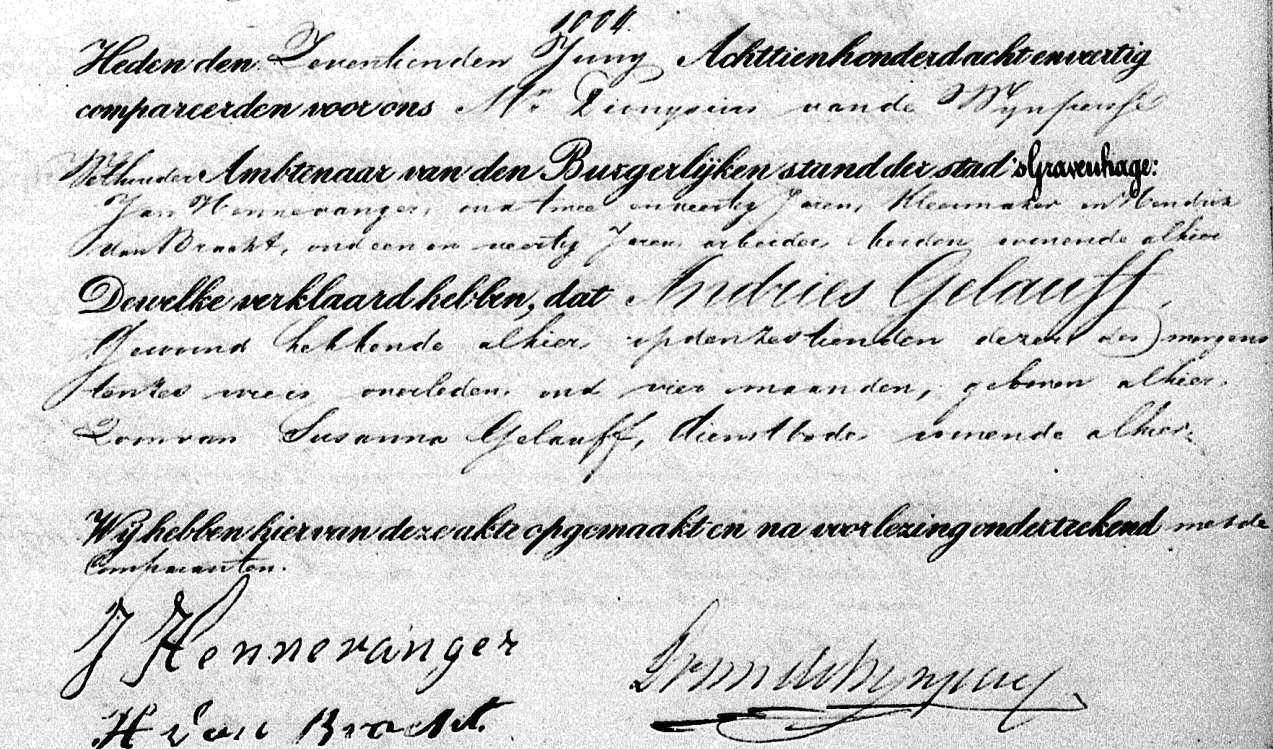 1004.
Heden den Zeventienden Juny Achttienhonderd acht en veertig
compareerden voor ons Mr. Dionysius van de Wynpersse
Wethouder Ambtenaar van den Burgerlijken stand der stad 'sGravenhage:
Jan Hennevanger, oud twee en veertig Jaren, Kleermaker en Hendrik
van Bracht, oud een en veertig Jaren arbeider, beiden wonende alhier
Dewelke verklaard hebben, dat Andries Gelauff,
Gewoond hebbende alhier op den zestienden dezer des morgens
ten zes ure is overleden, oud vier maanden, geboren alhier.
Zoon van Susanna Gelauff, dienstbode wonende alhier.
Wij hebben hiervan deze akte opgemaakt en na voorlezing onderteekend met de
Comparanten.
J Hennevanger
H van Bracht